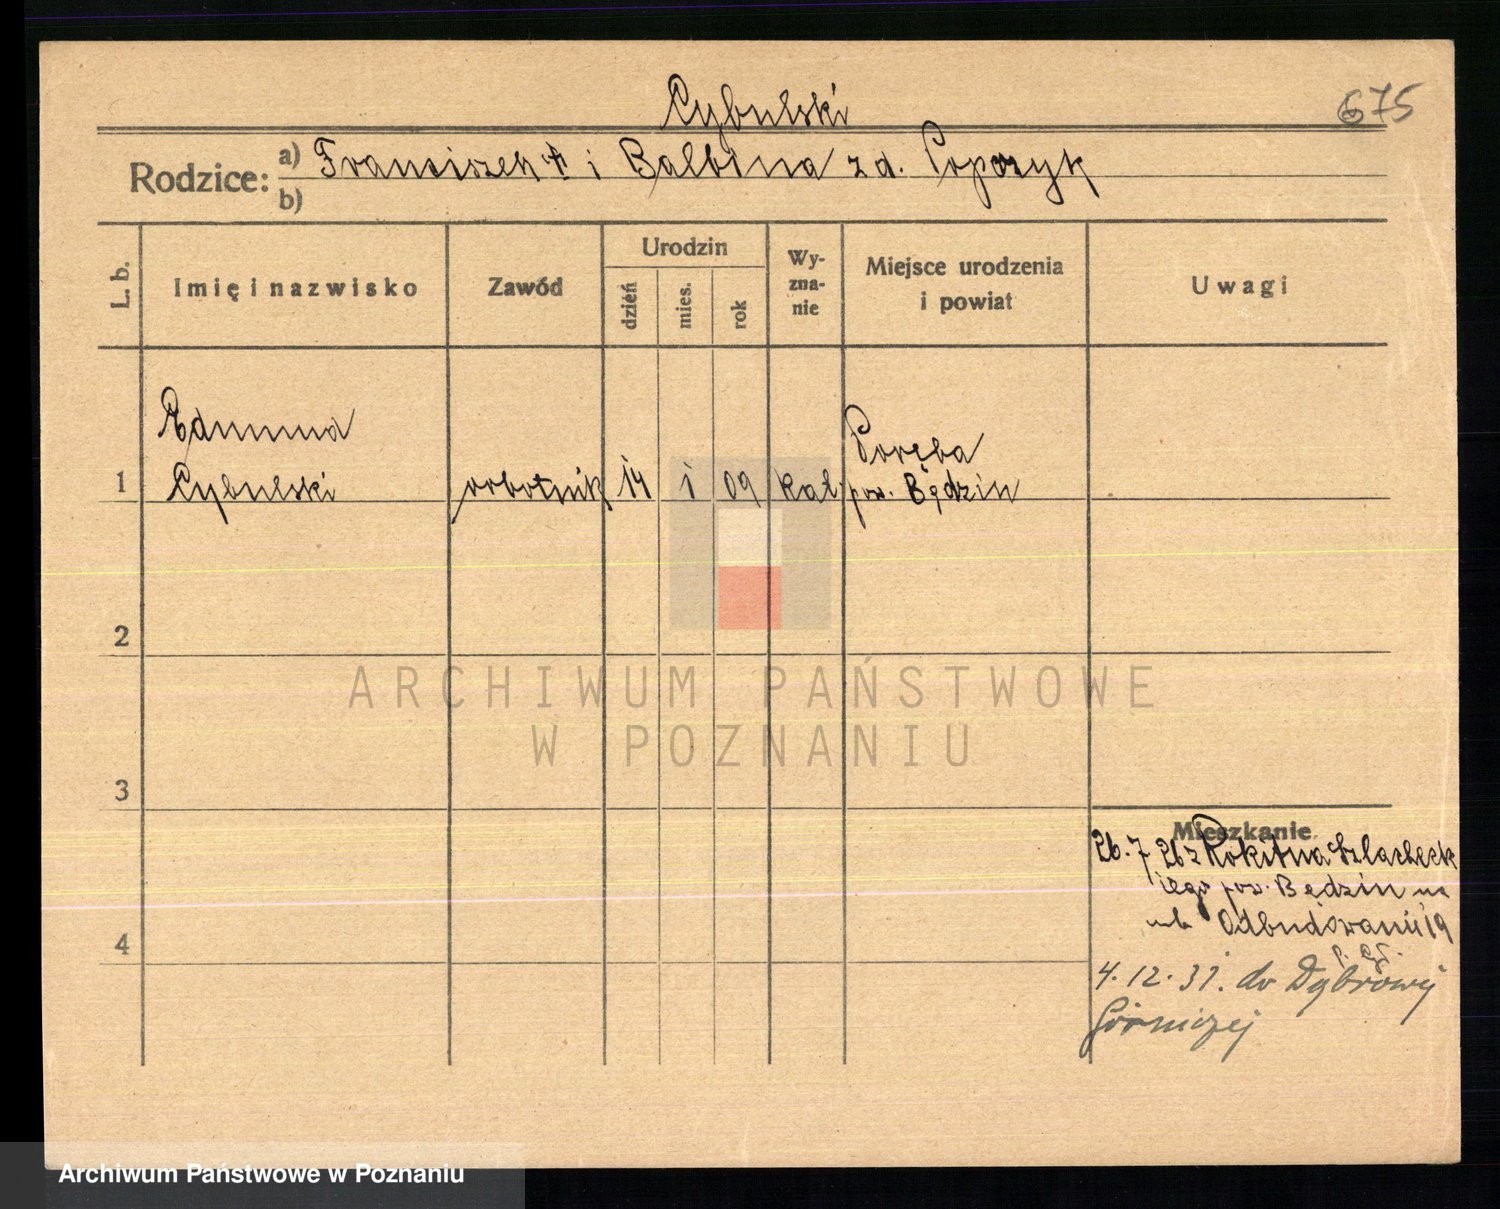 Cybulski
675
Rodzice:
a) Franciszek † i Balbina z d.
b)
L. b.
Imię i nazwisko
Zawód
Urodzin
dzień
mies.
rok
Wy-
zna-
nie
Miejsce urodzenia
i powiat
Uwagi
1
Edmund
Cybulski
robotnik
14
1
09
kat.
Poręba
pow. Będzin
2
3
4
Mieszkanie
26. 7 26 z Rokitna Szlacheck
iego pow. Będzin na
Odbudowaniu 19
4. 12. 31. do Dąbrowy
Górniczej
ARCHIWUM PAŃSTWOWE
W POZNANIU
Archiwum Państwowe w Poznaniu